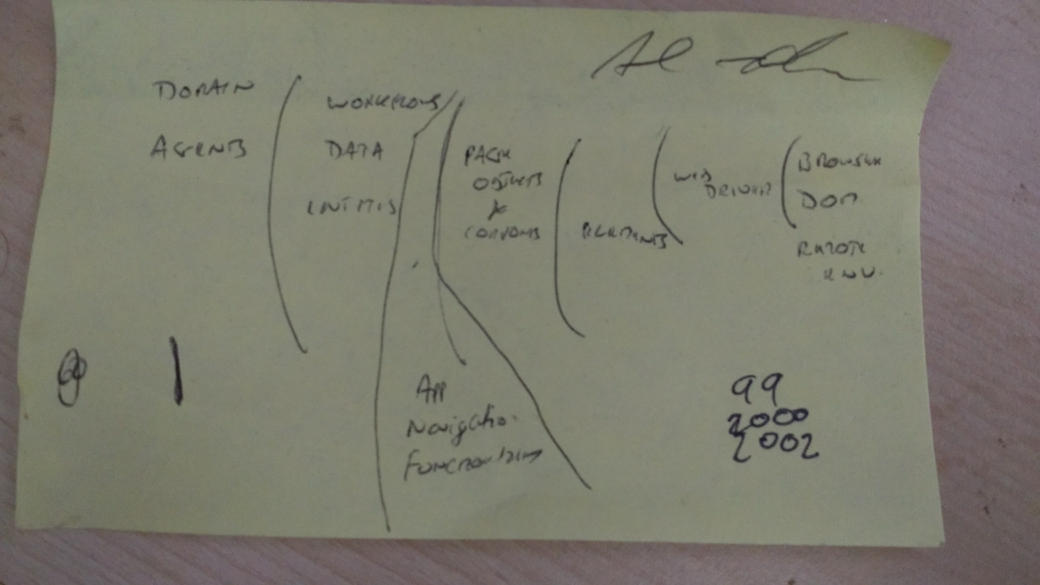 DOMAIN
AGENTS
WORKFLOWS
DATA
ENTITIES
PAGE
OBJECTS
&
App
Navigation
Functionality
ELEMENTS
WEB
DRIVER
BROWSER
DOM
REMOTE
ENV.
99
2000
2002